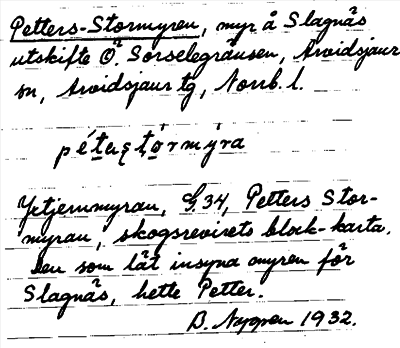 Petters-Stormyren, myr å Slagnäs
utskifte Ö. Sorselegränsen, Arvidsjaur
sn, Arvidsjaur tg, Norrb. l.
pétaʂtórmýra
G.34, Petters Stor-
myran, skogsrevirets block-karta.
Den som lät insyna myren för
Slagnäs, hette Petter.
B. Nygren 1932.